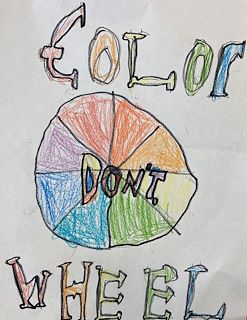 COLOr
DON'T
WHEEL